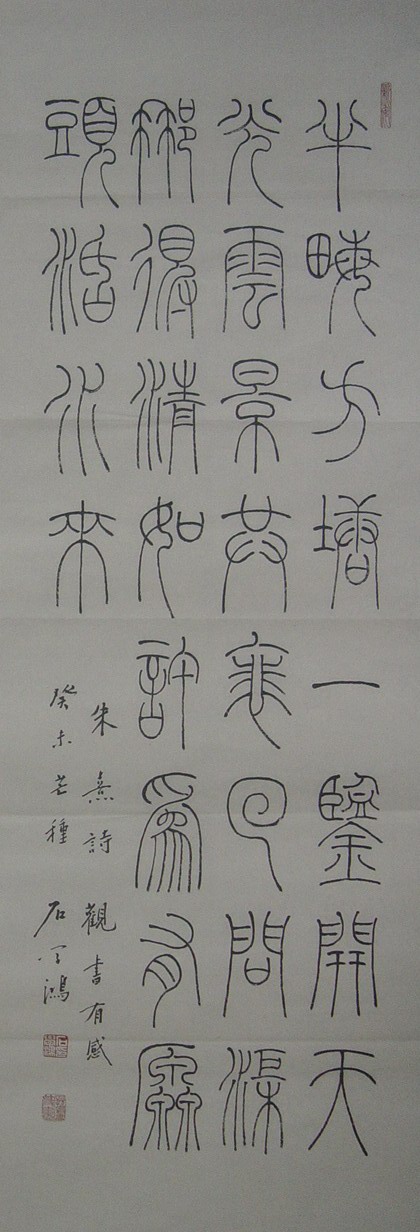 半畮方塘一鑒開天
光雲景共裵回問渠
那得清如許爲有厵
頭活水來
朱熹詩 觀書有感
癸未芒種 石鴻